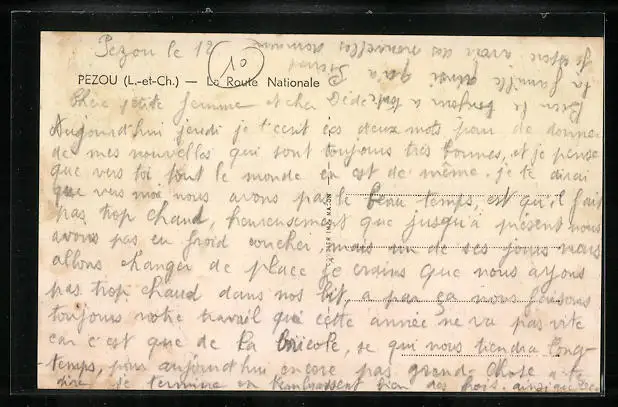 Pezou le 12
10
PEZOU (L.-et-Ch.) — La Route Nationale
Chère petite femme et cher Dédé
Aujourd'hui jeudi je t'ecrit ces deux mots pour de donner
de mes nouvelles qui sont toujours très bonnes, et je pense
que vers toi tout le monde en est de même. je te dirai
que vers moi nous avons pas le beau temps, est qu'il fait
pas trop chaud, heureusement que jusqu'à présent nous
avons pas eu froid coucher, mais un de ses jours nous
allons changer de place je crains que nous ayons
pas trop chaud dans nos lit, a par ça nous faisons
toujours notre travail qui cette année ne va pas vite
car c'est que de la bricole, se qui nous tiendra long-
temps, pour aujourd'hui encore pas grand chose a te
dire je termine en t'embrassent bien des fois ainsi que
Bien le bonjour a toute
la famille ainsi qu'a
J'espère avoir des nouvelles demain